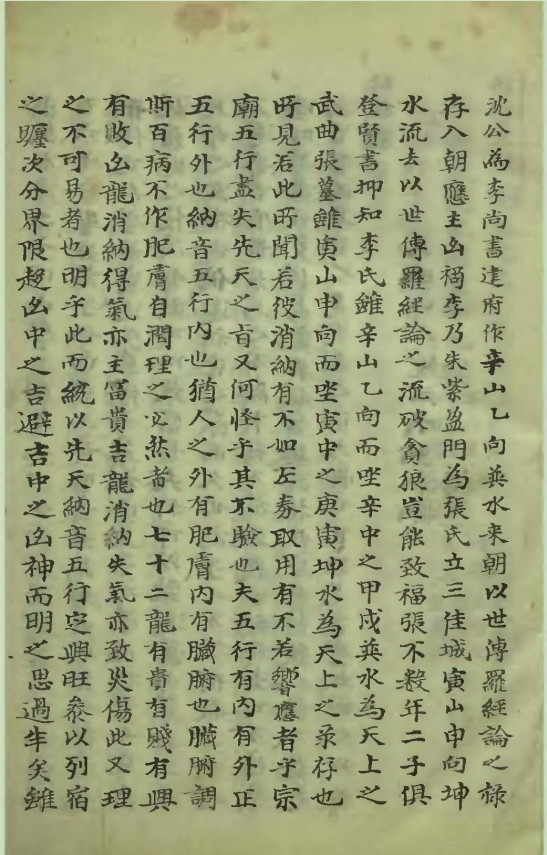 沈公為李尚書建府作辛山乙向巽水来朝以世傳羅經論之祿
存入朝應主凶禍李乃朱紫盈門為張氏立三佳城寅山申向坤
水流去以世傳羅經論之流破貪狼豈能致福張不数年二子俱
登賢書抑知李氏雖辛山乙向而坐辛中之甲戌巽水為天上之
武曲張墓雖寅山申向而坐寅中之庚寅坤水為天上之祿存也
所見若此所聞若彼消納有不如左券取用有不若響應者乎宗
廟五行盡失先天之旨又何怪乎其不驗也夫五行有内有外正
五行外也納音五行内也猶人之外有肥膚内有臓腑也臓腑調
斯百病不作肥膚自潤理之必然者也七十二龍有貴有賤有興
有敗凶龍消納得氣亦主冨貴吉龍消納失氣亦致災傷此又理
之不可易者也明乎此而統以先天納音五行定興旺叅以列宿
之躔次分界限趨凶中之吉避吉中之凶神而明之思過半矣雖